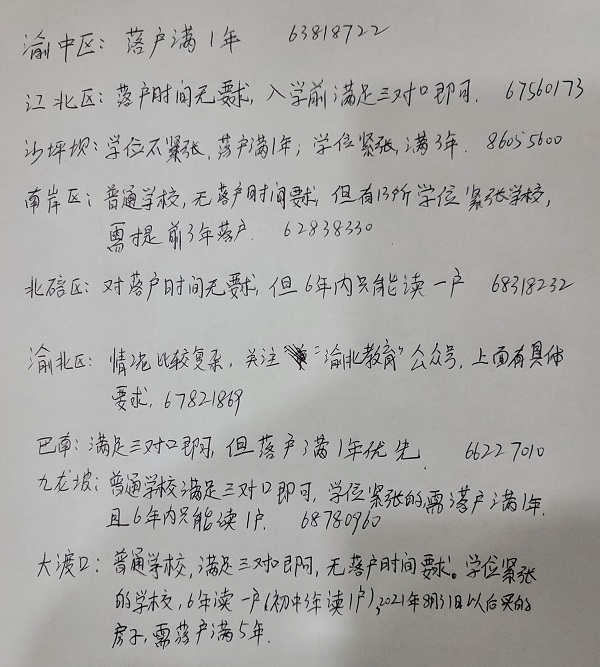 渝中区：落户满1年 63818722
江北区：落户时间无要求，入学前满足三对口即可. 67560173
沙坪坝：学位不紧张，落户满1年；学位紧张，满3年. 86055600
南岸区：普通学校，无落户时间要求，但有13所学位紧张学校，
需提前3年落户. 62838330
北碚区：对落户时间无要求，但6年内只能读一户 68318232
渝北区：情况比较复杂，关注“渝北教育”公众号，上面有具体
要求. 67821869
巴南：满足三对口即可，但落户满1年优先. 66227010
九龙坡：普通学校满足三对口即可，学位紧张的需落户满1年.
且6年内只能读1户. 68780960
大渡口：普通学校，满足三对口即可，无落户时间要求。学位紧张
的学校，6年读一户(初中3年读1户),2021年8月31日以后买的
房子，需落户满5年.